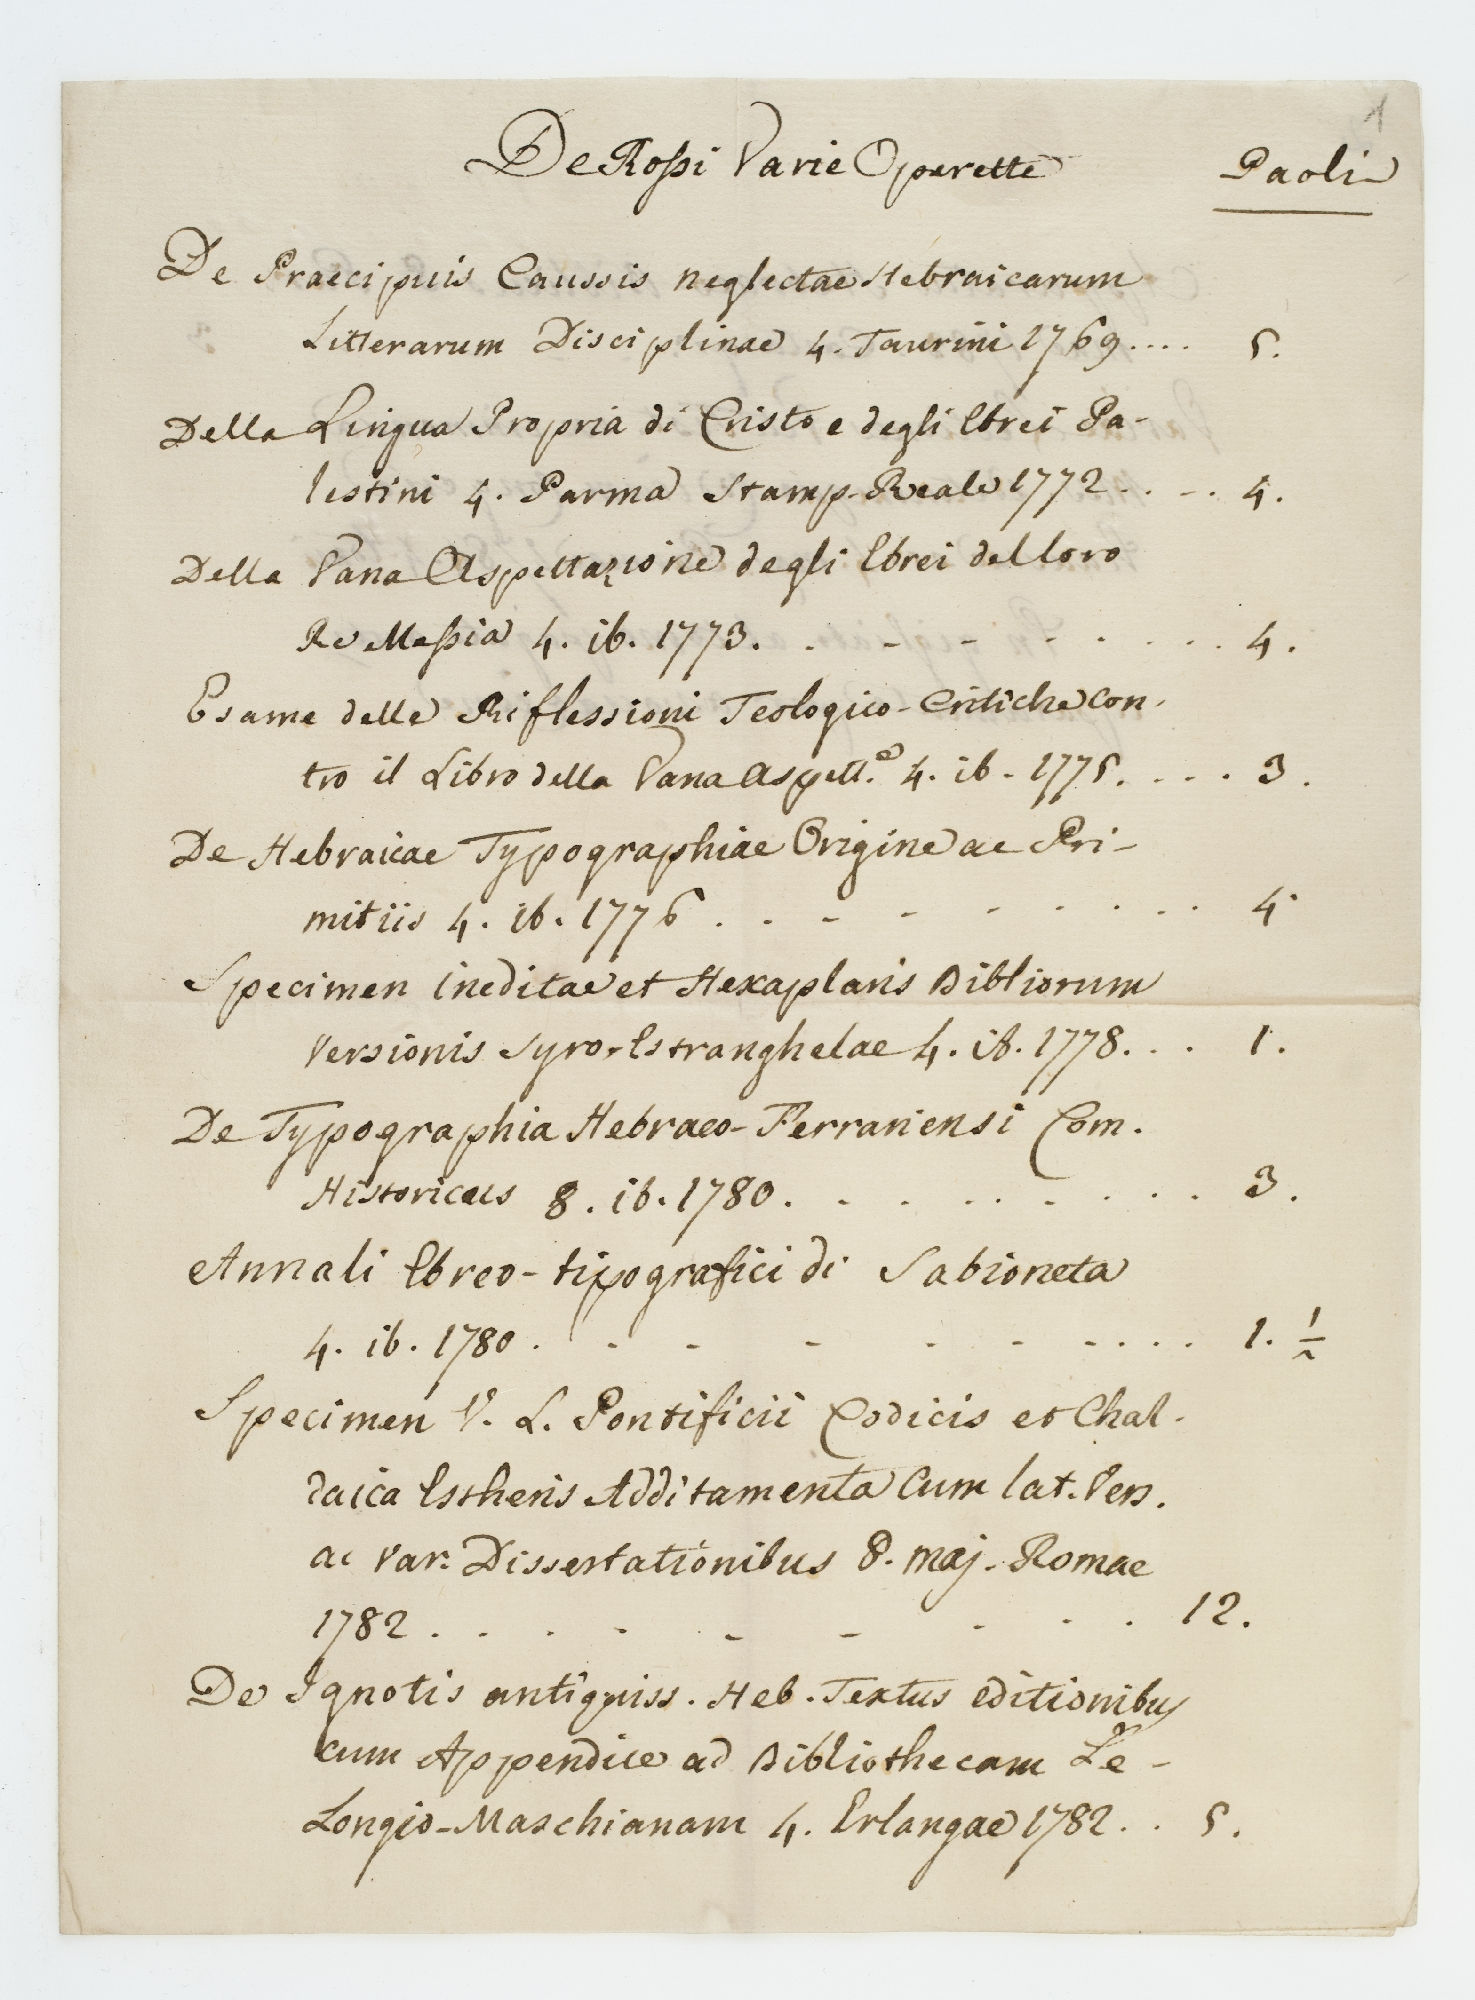 1
De Rossi Varie Operette Paoli
De Praecipuis Caussis neglectae Hebraicarum
Litterarum Disciplinae 4. Taurini 1769.... 5.
Della Lingua Propria di Cristo e degli Ebrei Pa-
lestini 4. Parma Stamp. Reale 1772.... 4.
Della Vana Aspettazione degli Ebrei del loro
Re Messia 4. ib. 1773. . - - - . . . . 4.
Esame delle Riflessioni Teologico-Critiche con-
tro il Libro della Vana Aspett.e 4. ib. 1775. . . . 3.
De Hebraicae Typographiae Origine ac Pri-
mitiis 4. ib. 1776 . . - - - . . . . 4.
Specimen ineditae et Hexaplaris Bibliorum
Versionis Syro-Estranghelae 4. ib. 1778. . . 1.
De Typographia Hebraeo-Ferrariensi Com.
Historicus 8. ib. 1780. . . . . . . . . 3.
Annali Ebreo-tipografici di Sabioneta
4. ib. 1780 . - - - - - - . . . 1. 1/2
Specimen V. L. Pontificii Codicis et Chal-
daica Estheris Additamenta cum lat. Vers.
ac var. Dissertationibus 8. maj. Romae
1782 . . . - - - . . . 12.
De Ignotis antiquiss. Heb. Textus editionibus
cum Appendice ad Bibliothecam Le-
Longio-Maschianam 4. Erlangae 1782. . 5.